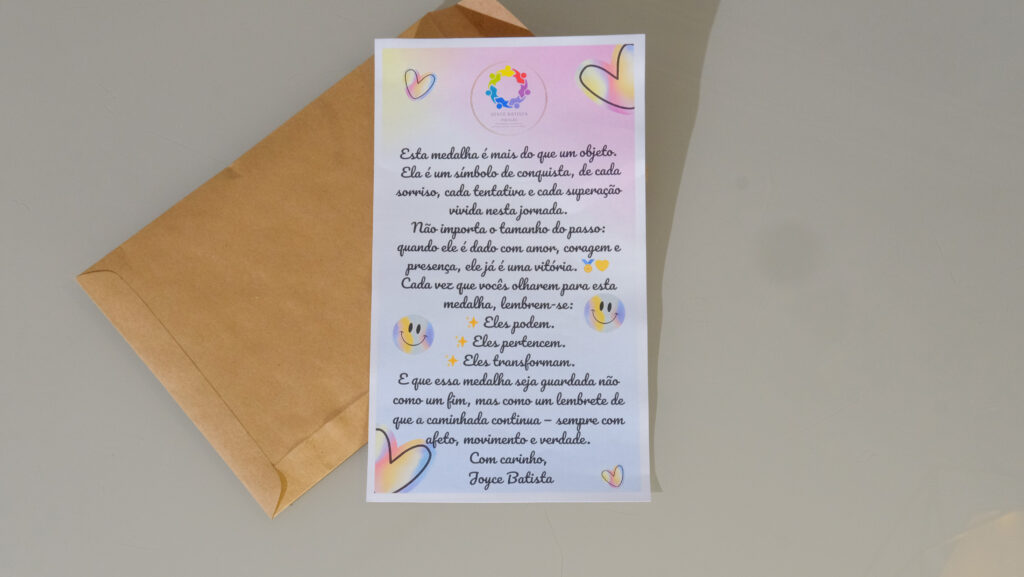 JOYCE BATISTA
Esta medalha é mais do que um objeto.
Ela é um símbolo de conquista, de cada
sorriso, cada tentativa e cada superação
vivida nesta jornada.
Não importa o tamanho do passo:
quando ele é dado com amor, coragem e
presença, ele já é uma vitória. 🏅💛
Cada vez que vocês olharem para esta
medalha, lembrem-se:
✨ Eles podem.
✨ Eles pertencem.
✨ Eles transformam.
E que essa medalha seja guardada não
como um fim, mas como um lembrete de
que a caminhada continua – sempre com
afeto, movimento e verdade.
Com carinho,
Joyce Batista